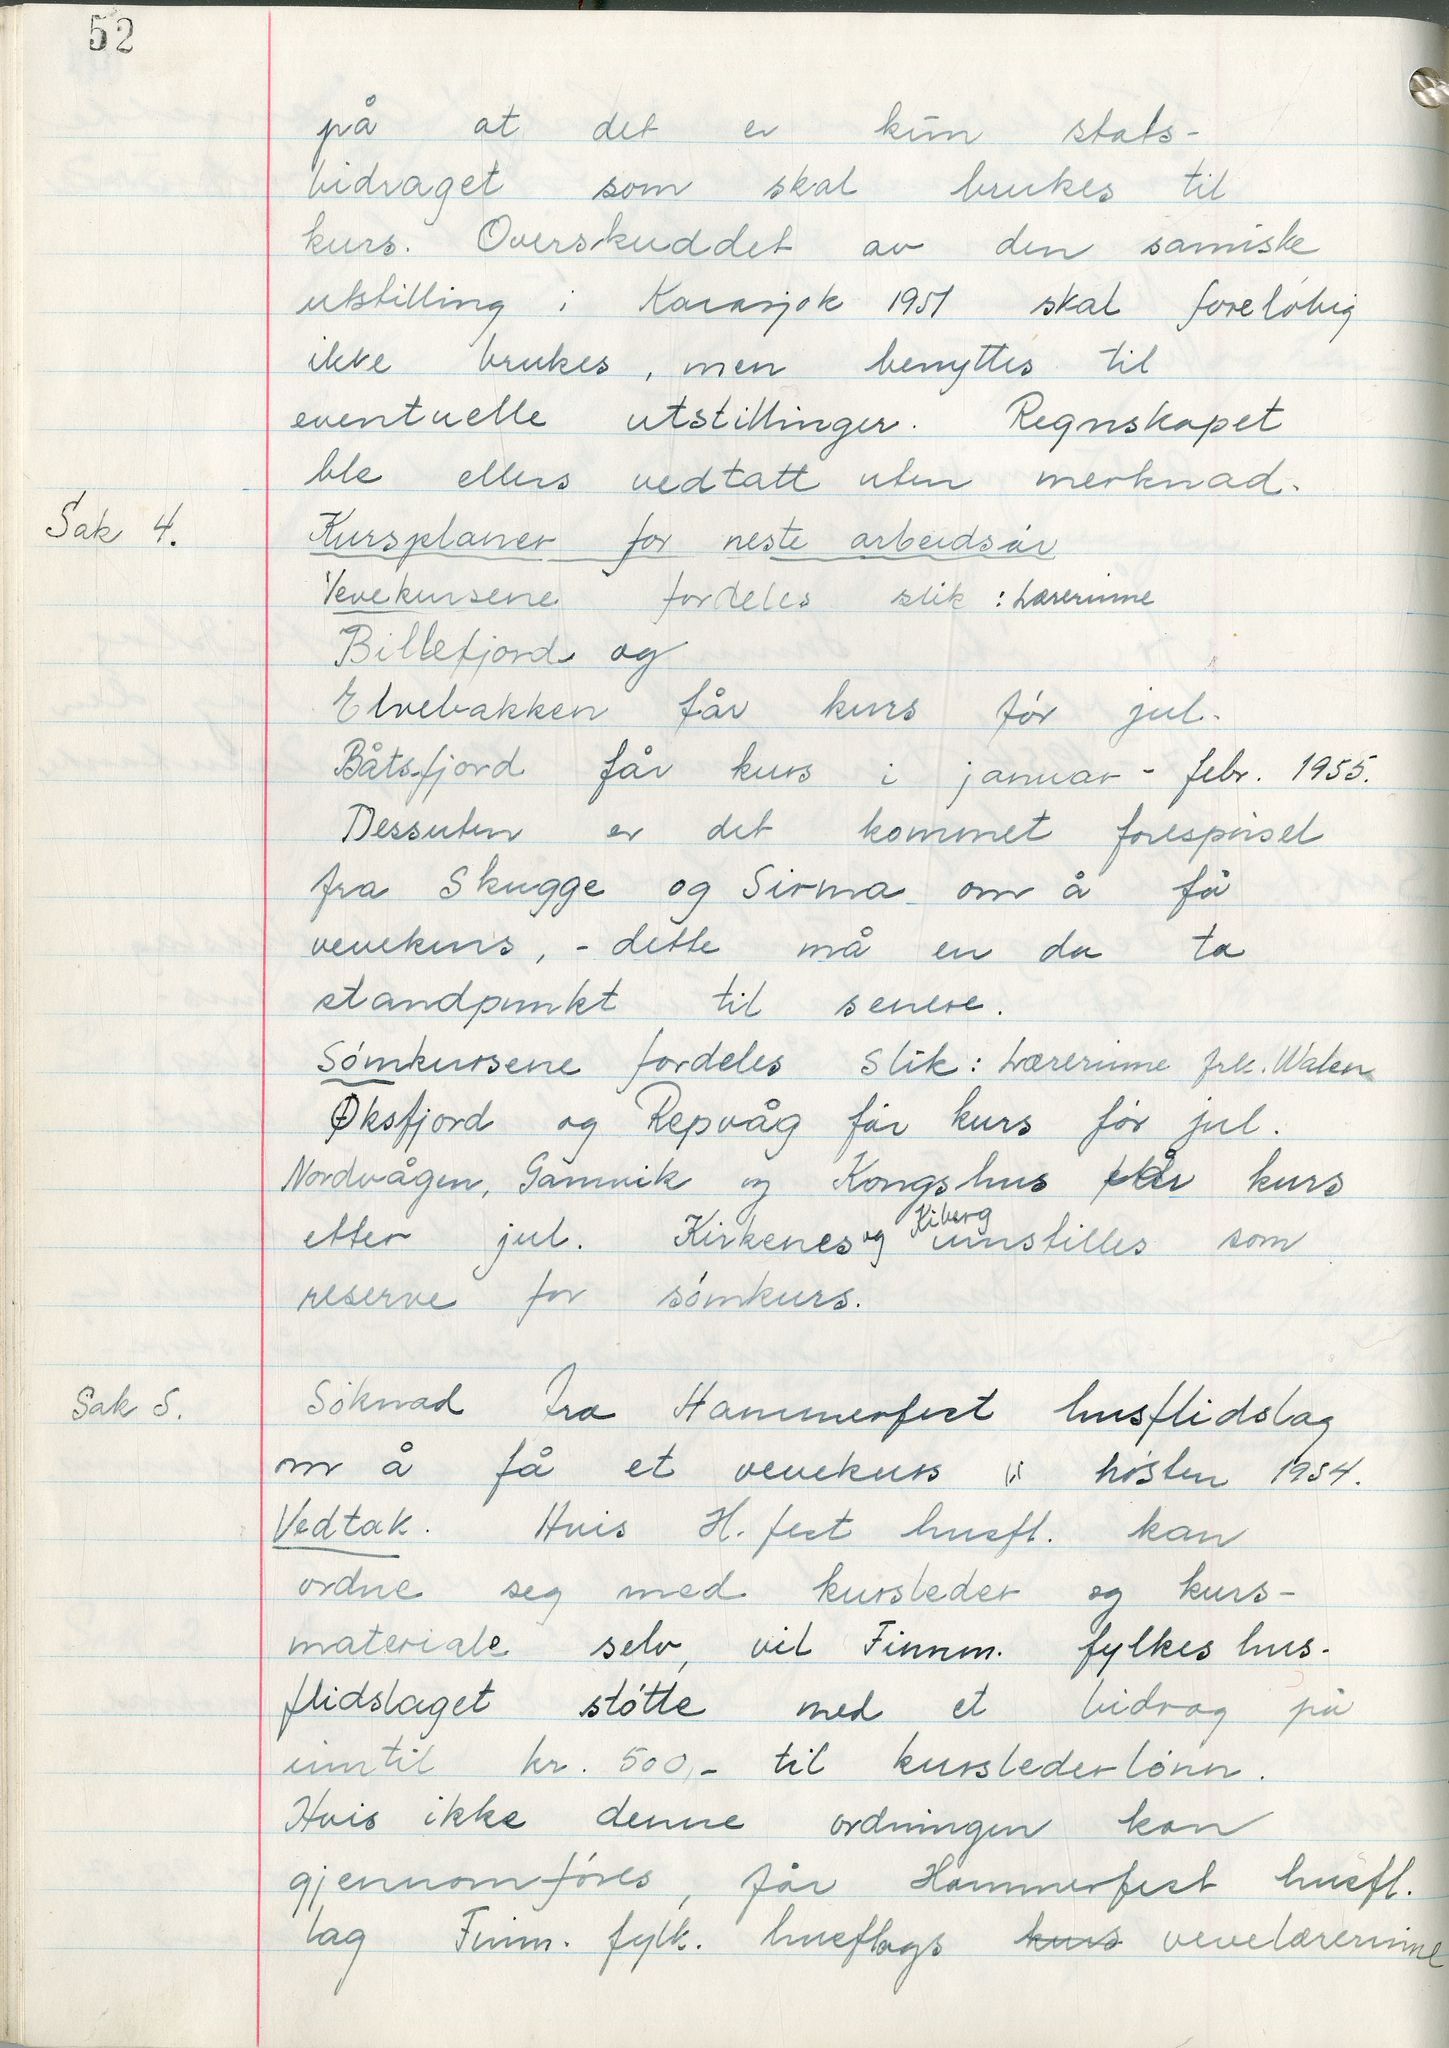 52
på at det er kun stats-
bidraget som skal brukes til
kurs. Overskuddet av den samiske
utstilling i Karasjok 1951 skal foreløbig
ikke brukes, men benyttes til
eventuelle utstillinger. Regnskapet
ble ellers vedtatt uten merknad.
Sak 4. Kursplaner for neste arbeidsår
Vevekursene fordeles slik: Lærerinne
Billefjord og
Elvebakken får kurs før jul.
Båtsfjord får kurs i januar - febr. 1955.
Dessuten er det kommet forespørsel
fra Skugge og Sirma om å få
vevekurs, - dette må en da ta
standpunkt til senere.
Sømkursene fordeles slik: Lærerinne frk. Walen
Øksfjord og Repvåg får kurs før jul.
Nordvågen, Gamvik og Kongshus får kurs
etter jul. Kirkenes og Kiberg innstilles som
reserve for sømkurs.
Sak 5. Søknad fra Hammerfest husflidslag
om å få et vevekurs i høsten 1954.
Vedtak. Hvis H.fest husfl. kan
ordne seg med kursleder og kurs-
materiale selv, vil Finnm. fylkes hus-
flidslaget støtte med et bidrag på
inntil kr. 500,- til kurslederlønn.
Hvis ikke denne ordningen kan
gjennomføres, får Hammerfest husfl.
lag Finnm. fylk. husflags kurs vevelærerinne